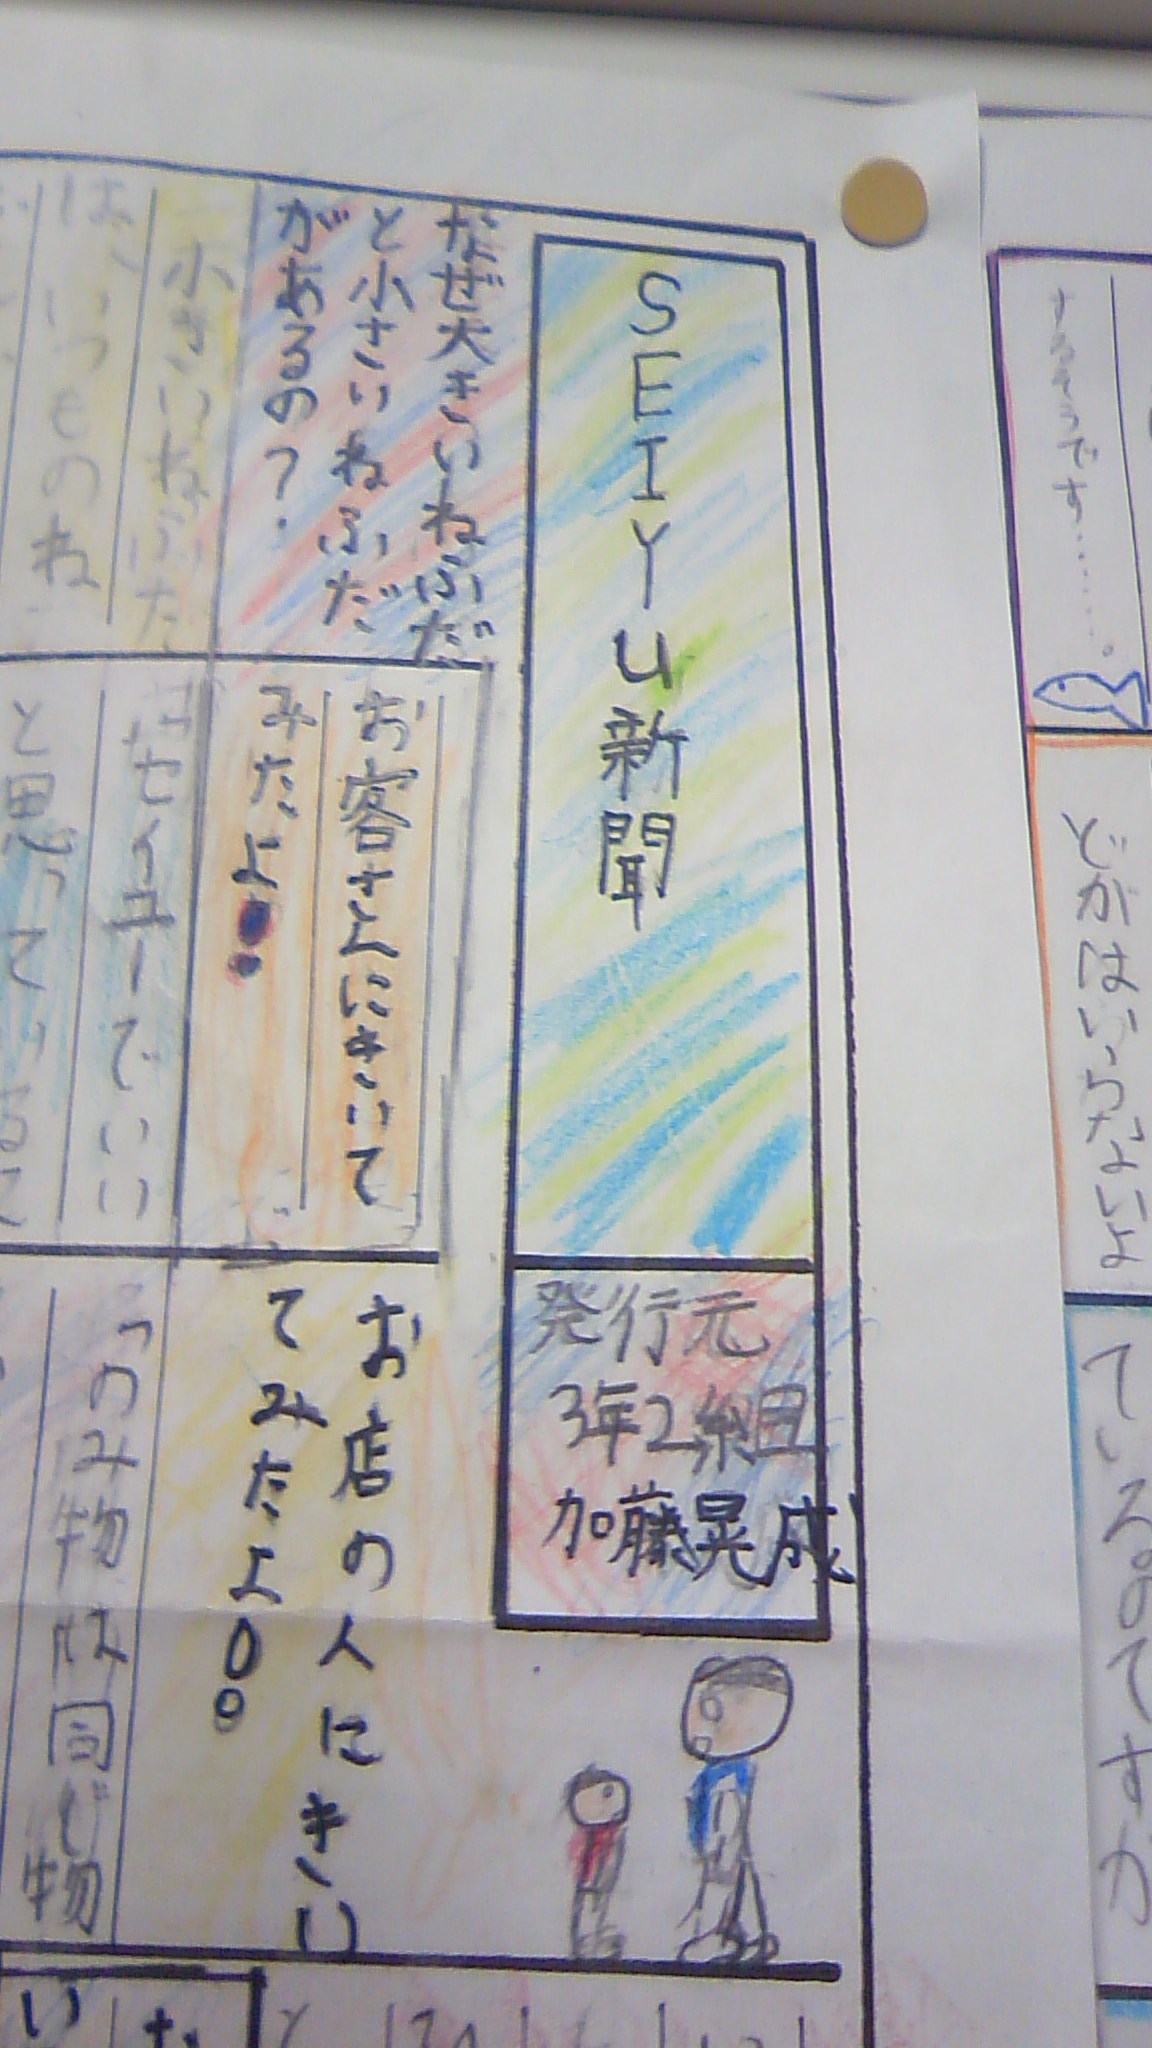 SEIYu新聞
発行元
3年2組
加藤晃成
なぜ大きいねふだ
と小さいねふだ
があるの?
小さいねふた
は、いつものね
お客さんにきいて
みたよ!
はセイユーでいい
と思って
お店の人にきい
てみたよ!。
「のみ物は同じ物
どがはいらないよ
ているのですか